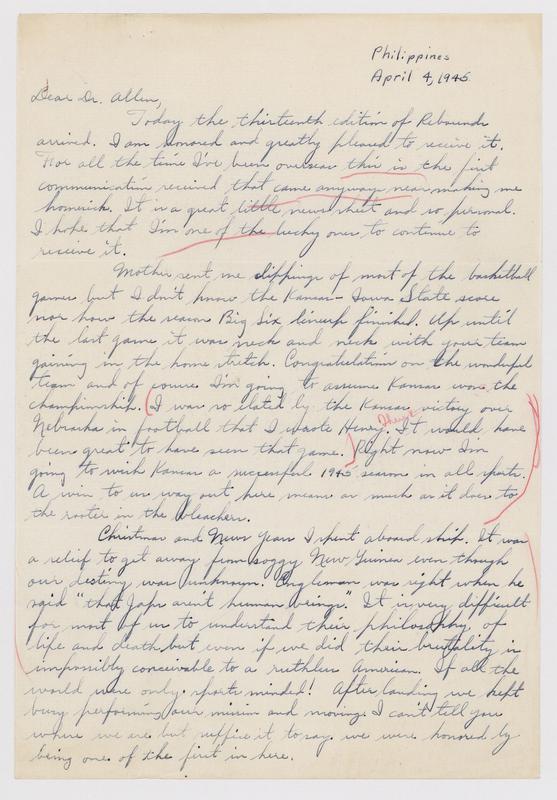 Philippines
April 4, 1945
Dear Dr. Allen,
Today the thirteenth edition of Rebounds
arrived. I am honored and greatly pleased to receive it.
For all the time I've been overseas this is the first
communication received that came anyway near making me
homesick. It is a great little news sheet and so personal.
I hope that I'm one of the lucky ones to continue to
receive it.
Mother sent me clippings of most of the basketball
games but I don't know the Kansas-Iowa State score
nor how the season Big Six lineup finished. Up until
the last game it was neck and neck with your team
gaining in the home stretch. Congratulation on the wonderful
team and of course I'm going to assume Kansas won the
championship. (I was so elated by the Kansas victory over
Nebraska in football that I wrote Henry. It would have
been great to have seen that game.) Right now I'm
going to wish Kansas a successful 1945 season in all sports.
A win to us way out here means as much as it does to
the rooter in the bleachers.
Christmas and New Years I spent aboard ship. It was
a relief to get away from soggy New Guinea even though
our destiny was unknown. Engleman was right when he
said "that Japs aren't human beings." It is very difficult
for most of us to understand their philosophy of
life and death but even if we did their brutality is
impossibly conceivable to a ruthless American. If all the
world were only sports minded! After landing we kept
busy performing our mission and moving. I can't tell you
where we are but suffice it to say we were honored by
being one of the first in here.